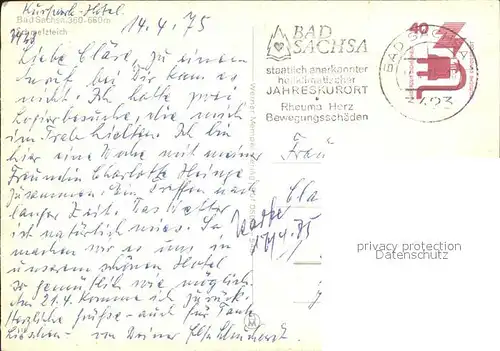 Kurpark-Hotel.
Bad Sachsa, 360-660 m
Schmelzteich
14.4.75
Liebe Cläre, zu einem
Anruf bei Dir kam es
nicht. Ich hatte zwei
Logierbesuche, die mich
im Trab hielten. Ich bin
hier eine Woche mit meiner
Freundin Charlotte
zusammen. Ein Treffen nach
langer Zeit. Das Wetter
ist natürlich mies. So
machen wir es uns in
unserem schönen Hotel
so gemütlich wie möglich.
Am 21.4. komme ich zurück.
Herzliche Grüße - auch für Tante
von Deiner
BAD
SACHSA
staatlich anerkannter
heilklimatischer
JAHRESKURORT
Rheuma Herz
Bewegungsschäden
40
BAD SACHSA
3423
Frau
Cla
17/4.75
privacy protection
Datenschutz